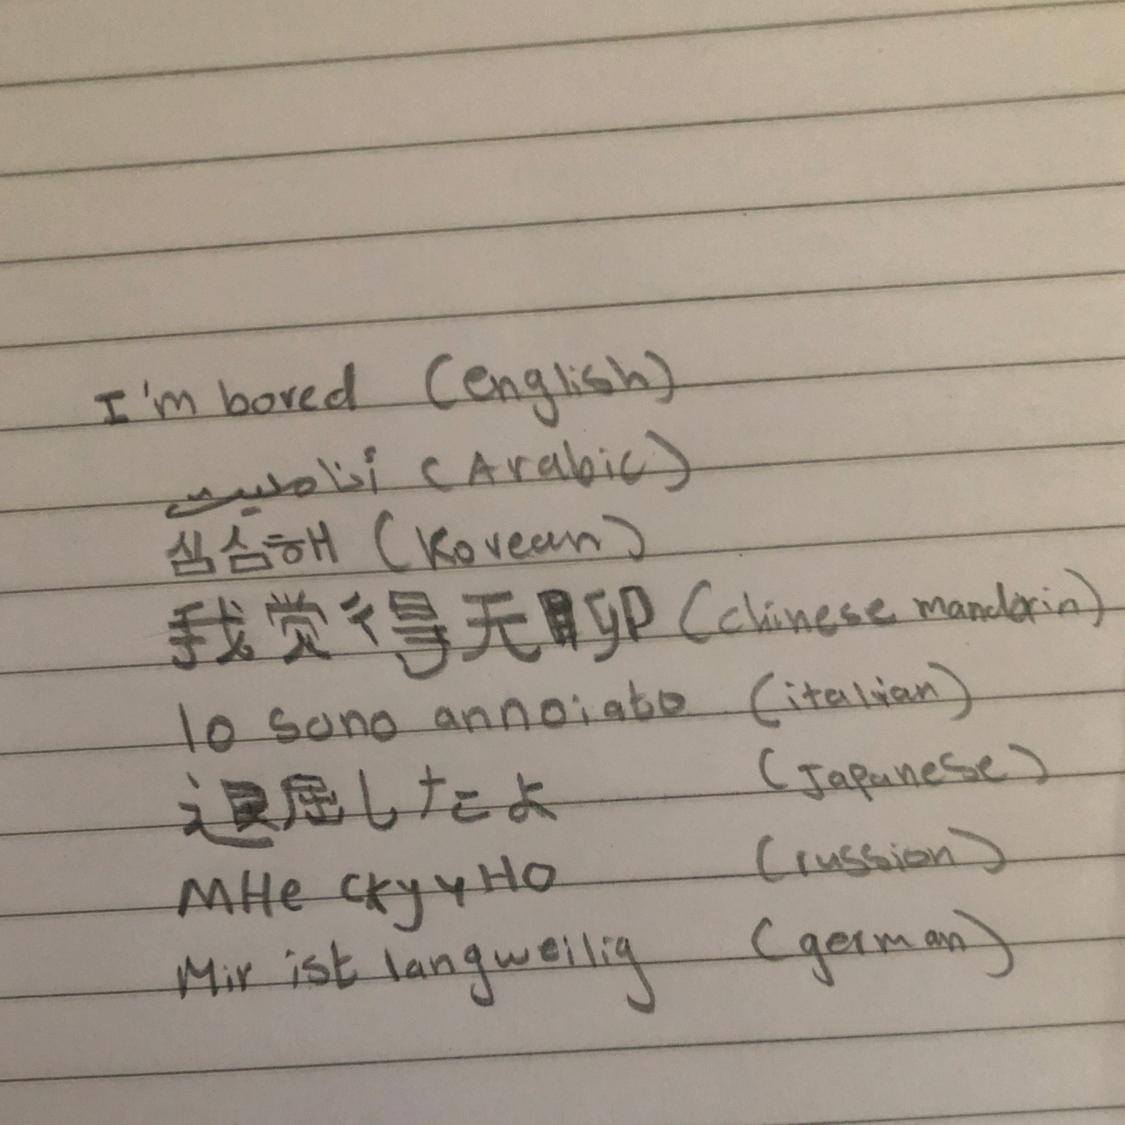 I'm bored (english)
أنا مليت (Arabic)
심심해 (Korean)
我觉得无聊 (chinese mandarin)
Io sono annoiato (italian)
退屈したよ (Japanese)
мне скучно (russion)
Mir ist langweilig (german)